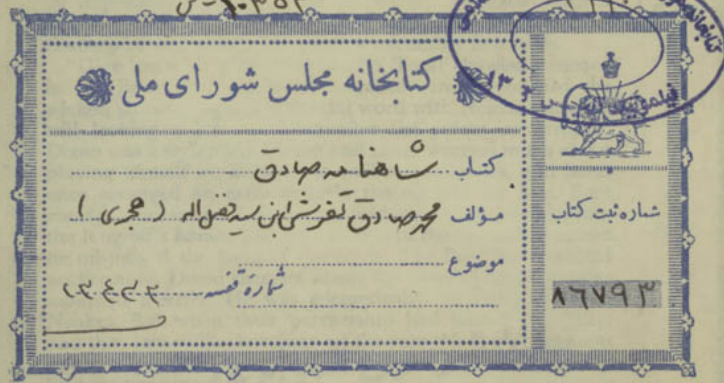 کتابخانه مجلس شورای ملی
کتاب شاهنامه صادق
مؤلف محمد صادق تفرشی ابن سید فضل اله (هجری)
موضوع
شمارهٔ قفسه
شماره ثبت کتاب
۸۶۷۹۳